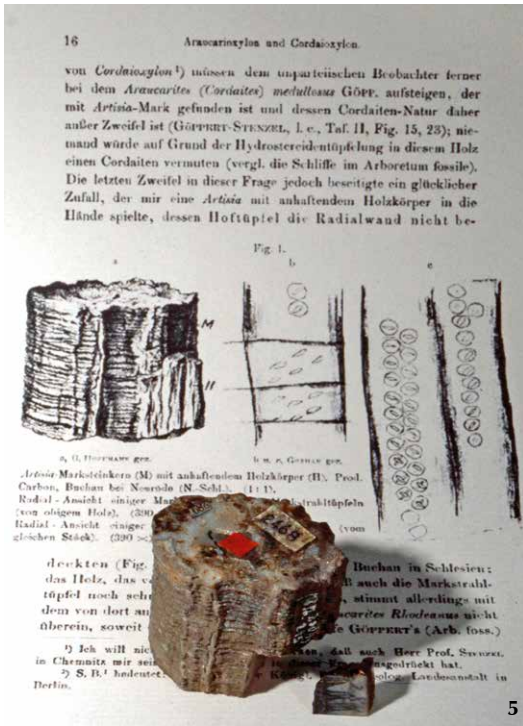 16 Araucarioxylon und Cordaioxylon.
von Cordaioxylon¹) müssen dem unparteiischen Beobachter ferner
bei dem Araucarites (Cordaites) medullosus GÖPP. aufsteigen, der
mit Artisia-Mark gefunden ist und dessen Cordaiten-Natur daher
außer Zweifel ist (GÖPPERT-STENZEL, l. c., Taf. II, Fig. 15, 23); nie-
mand würde auf Grund der Hydrostereidentüpfelung in diesem Holz
einen Cordaiten vermuten (vergl. die Schliffe im Arboretum fossile).
Die letzten Zweifel in dieser Frage jedoch beseitigte ein glücklicher
Zufall, der mir eine Artisia mit anhaftendem Holzkörper in die
Hände spielte, dessen Hoftüpfel die Radialwand nicht be-
Fig. 1.
a b c
M
H
a, O. HOFFMANN gez. b u. c, GOTHAN gez.
Artisia-Marksteinkern (M) mit anhaftendem Holzkörper (H). Prod.
Carbon, Buchau bei Neurode (N.-Schl.). (1 : 1).
Radial-Ansicht einiger strahltüpfeln
(von obigem Holz). (390
Radial-Ansicht einiger (vom
gleichen Stück). (390
deckten (Fig. Buchau in Schlesien;
das Holz, das auch die Markstrahl-
tüpfel noch stimmt allerdings mit
dem von dort Rhodeanus nicht
überein, soweit GÖPPERT's (Arb. foss.)
¹) Ich will daß auch Herr Prof. STENZEL
in Chemnitz mir ausgedrückt hat.
²) S. B.¹ bedeutet: Landesanstalt in
Berlin.
268
5